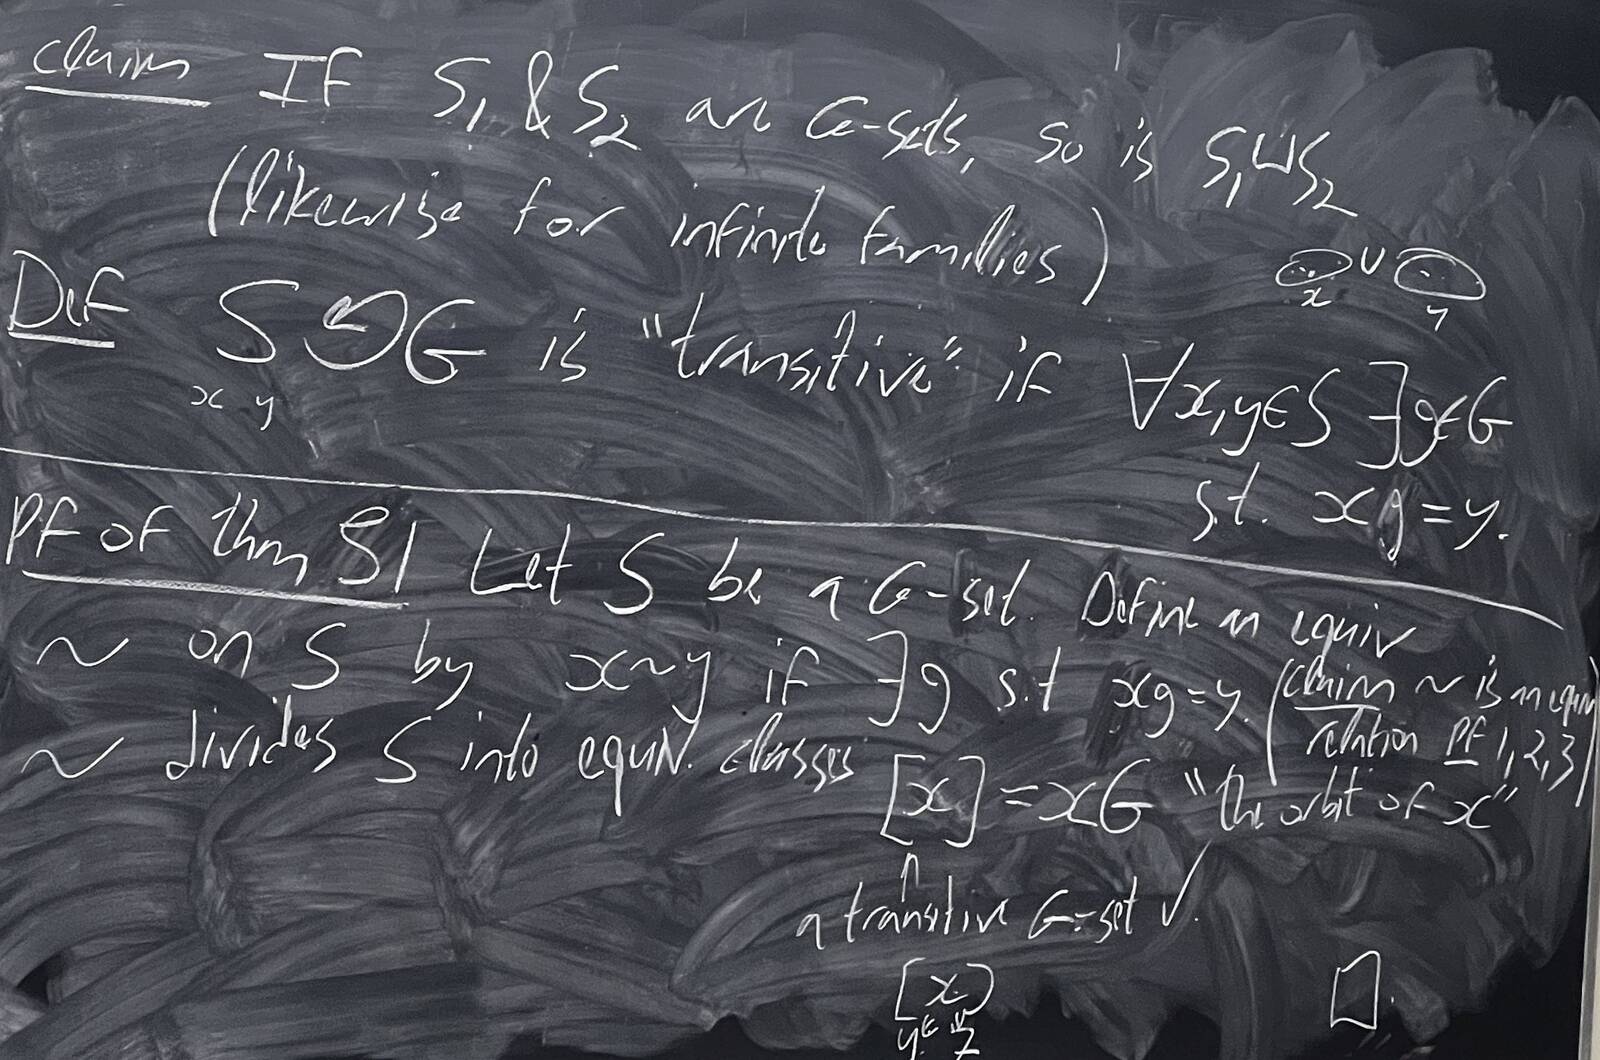 claim If S₁ & S₂ are G-sets, so is S₁⊔S₂
(likewise for infinite families)
x ∪ y
Def S ↶ G is "transitive" if ∀x,y∈S ∃g∈G
x y
s.t. xg=y.
PF of thm S1 Let S be a G-set. Define an equiv
~ on S by x~y if ∃g s.t xg=y. (claim ~ is an equiv
relation PF 1,2,3)
~ divides S into equiv. classes
[x]=xG "the orbit of x"
a transitive G-set ✓.
[x]
y∈ z
□.